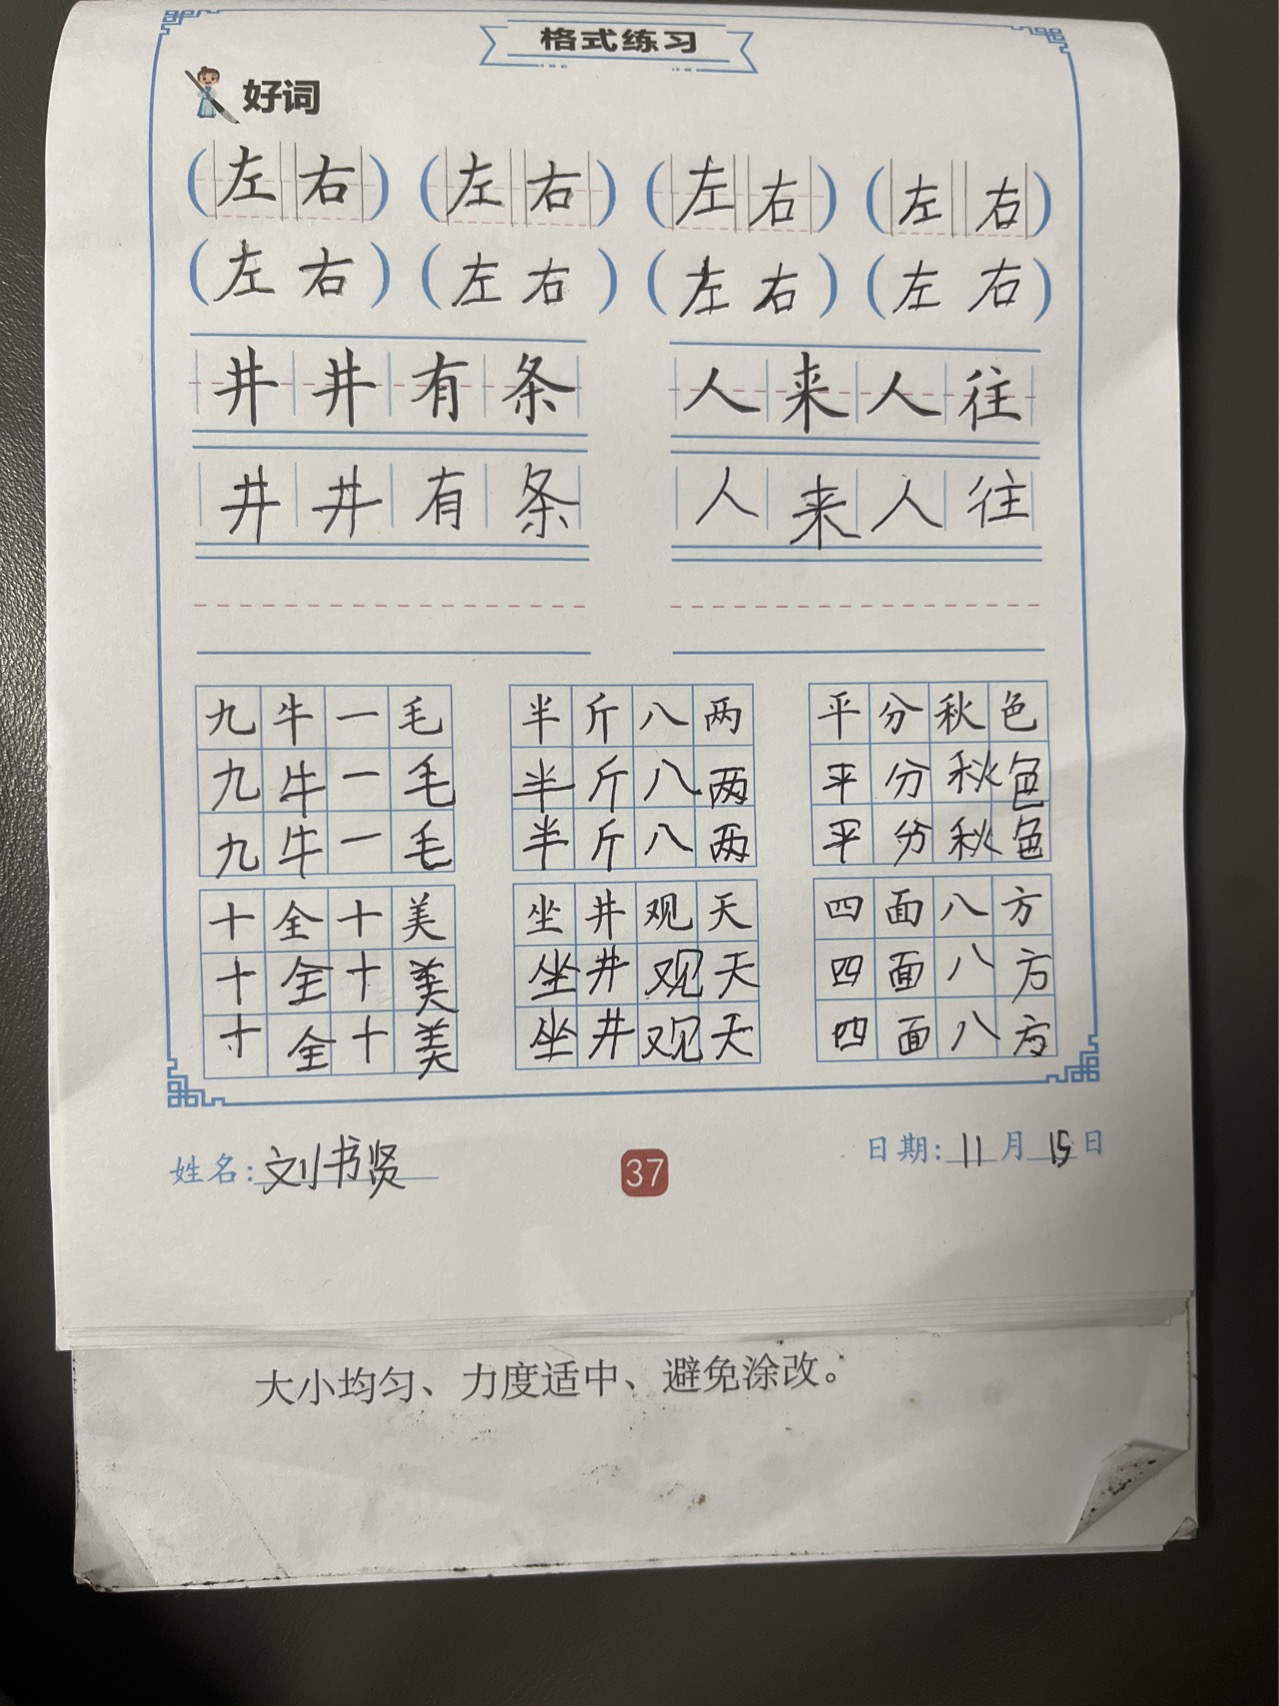 格式练习
好词
(左右) (左右) (左右) (左右)
(左右) (左右) (左右) (左右)
井井有条 人来人往
井井有条 人来人往
九牛一毛 半斤八两 平分秋色
九牛一毛 半斤八两 平分秋色
九牛一毛 半斤八两 平分秋色
十全十美 坐井观天 四面八方
十全十美 坐井观天 四面八方
十全十美 坐井观天 四面八方
姓名:刘书贤 37 日期:11月15日
大小均匀、力度适中、避免涂改。